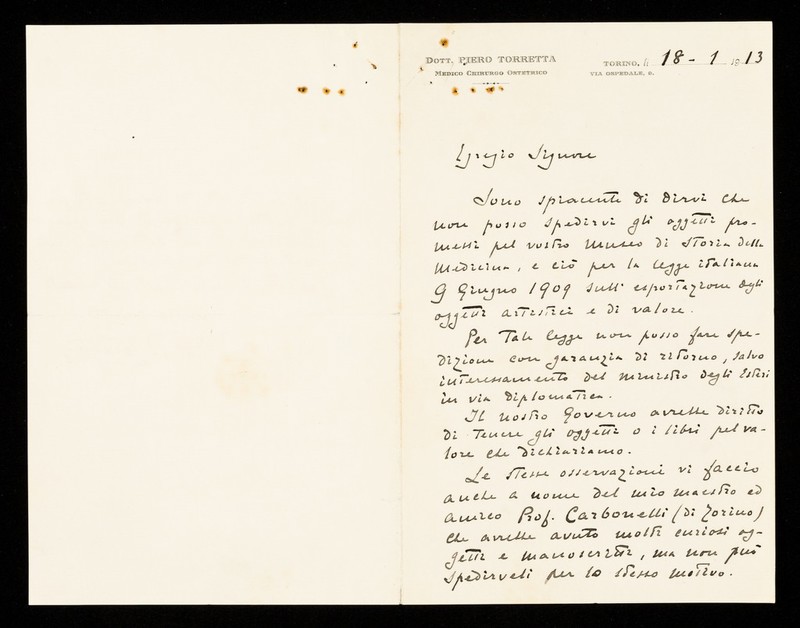 DOTT. PIERO TORRETTA
MEDICO CHIRURGO OSTETRICO
TORINO, li 18 - 1 1913
VIA OSPEDALE, 6.
Egregio Signore
Sono spiacente di dirvi che
non posso spedirvi gli oggetti pro-
messi pel vostro Museo di Storia della
Medicina, e ciò per la legge italiana
9 Giugno 1909 sull' esportazione degli
oggetti artistici e di valore.
Per Tale legge non posso fare spe-
dizione con garanzia di ritorno, salvo
interessamento del ministro degli Esteri
in via diplomatica.
Il nostro Governo avrebbe diritto
di Tenere gli oggetti o i libri pel va-
lore che dichiariamo.
Le stesse osservazioni vi faccio
anche a nome del mio maestro ed
amico Prof. Carbonelli (di Torino)
che avrebbe avuto molti curiosi og-
getti e manoscritti, ma non può
spedirveli per lo stesso motivo.